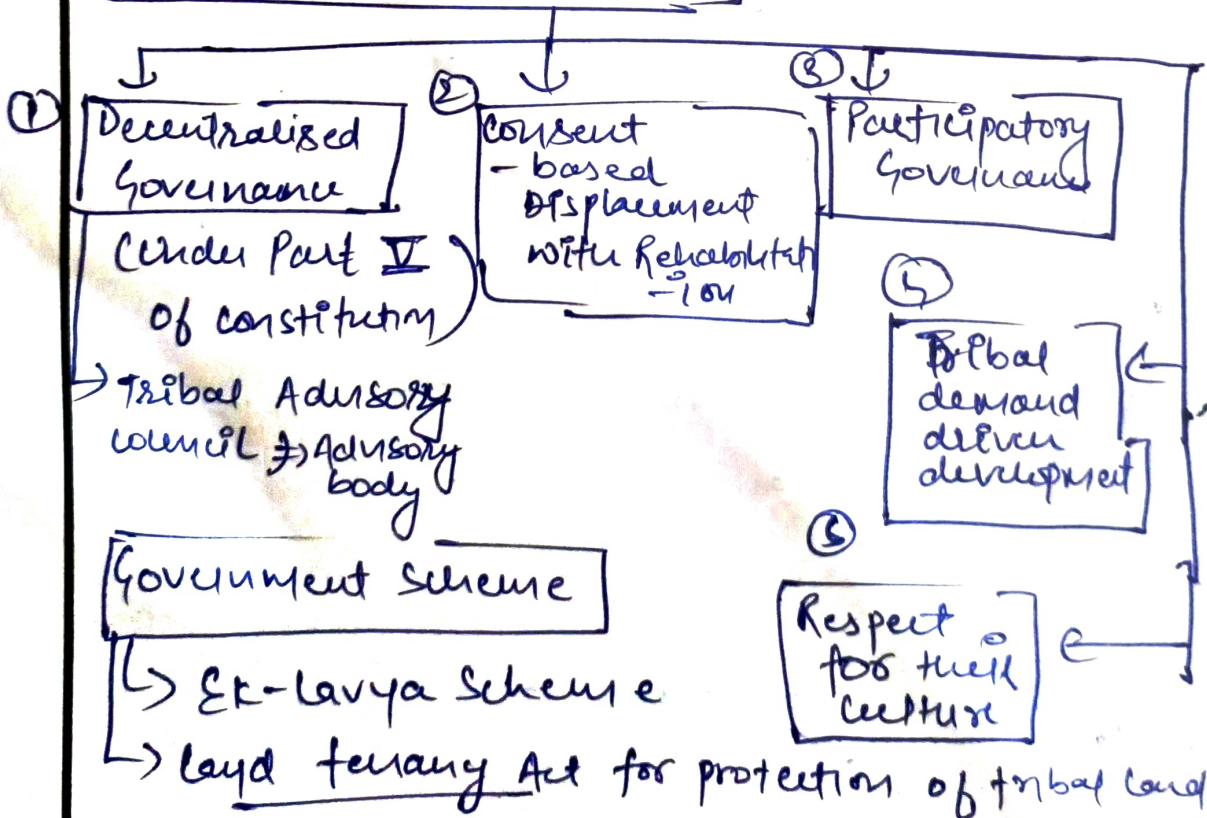 ① Decentralised
Governance
(Under Part V
of constitution)
→ Tribal Advisory
council → Advisory
body
② Consent
- based
Displacement
with Rehabilitat
-ion
③ Participatory
Governance
④ Tribal
demand
driven
development
⑤ Respect
for their
culture
Government Scheme
→ Ek-lavya Scheme
→ Land tenany Act for protection of tribal land